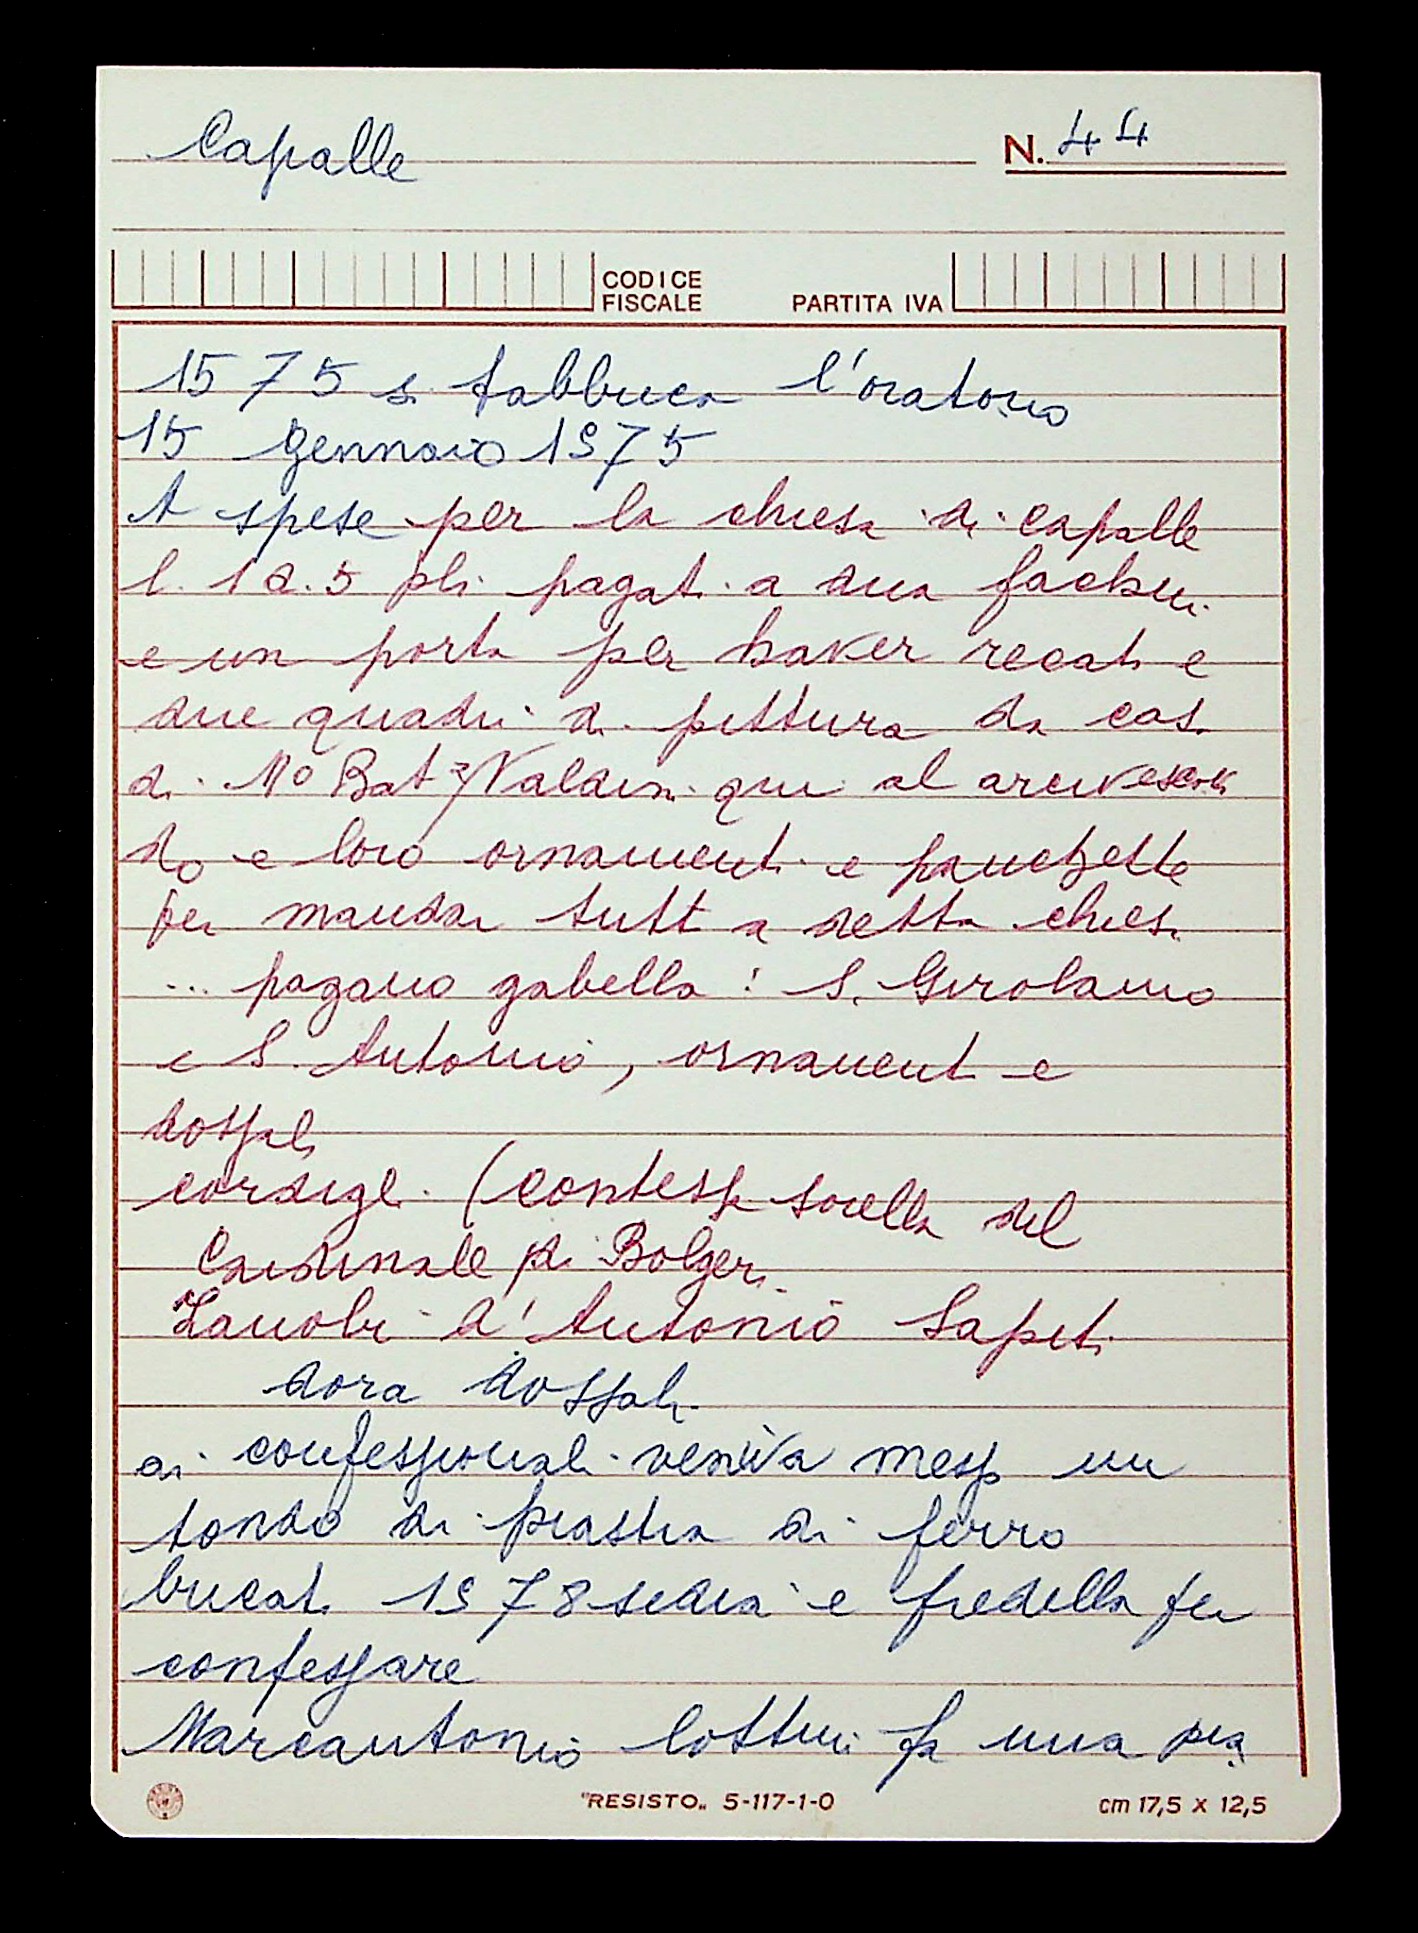 Capalle
N. 44
CODICE
FISCALE
PARTITA IVA
1575 si fabbrica l'oratorio
15 gennaio 1575
A spese per la chiesa di capalle
l. 1 d. 5 pli pagati a dua fachini
e un porta per haver recati e
due quadri di pittura da casa
di Mo Bat Naldini qui al arcivescova
do e loro ornamenti e panchette
per mandar tutt a detta chiesa
... pagano gabella: S. Girolamo
e S. Antonio, ornamenti e
dossali
cordigl. (contessa sorella del
Cardinale di
Zanobi d'Antonio Sapiti
dora dossali
ai confessionali veniva messo un
tondo di piastra di ferro
bucati 1578 sedia e predella per
confessare
Marcantonio lottini fa una pia
"RESISTO" 5-117-1-0
cm 17,5 x 12,5